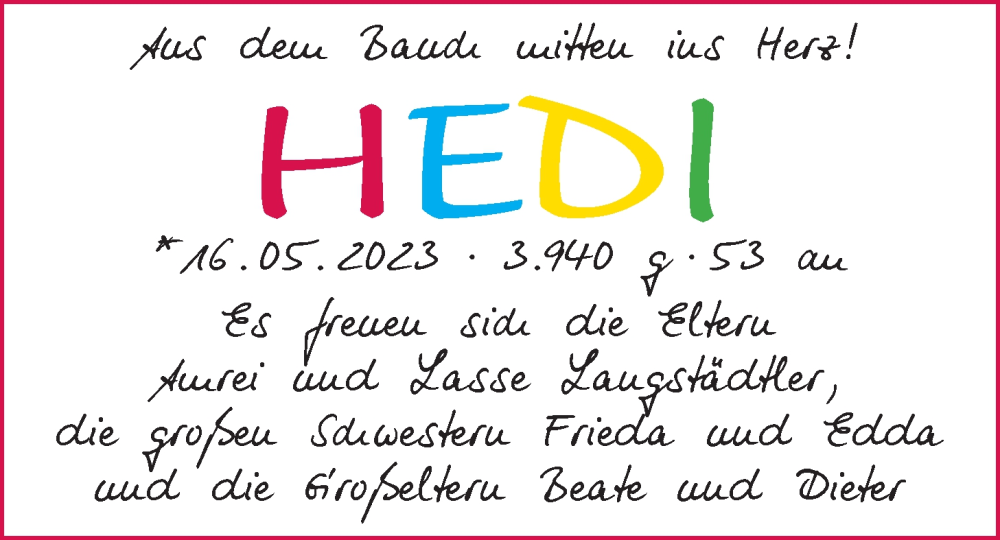 Aus dem Bauch mitten ins Herz!
HEDI
*16.05.2023 · 3.940 g · 53 cm
Es freuen sich die Eltern
Amrei und Lasse Langstädtler,
die großen Schwestern Frieda und Edda
und die Großeltern Beate und Dieter